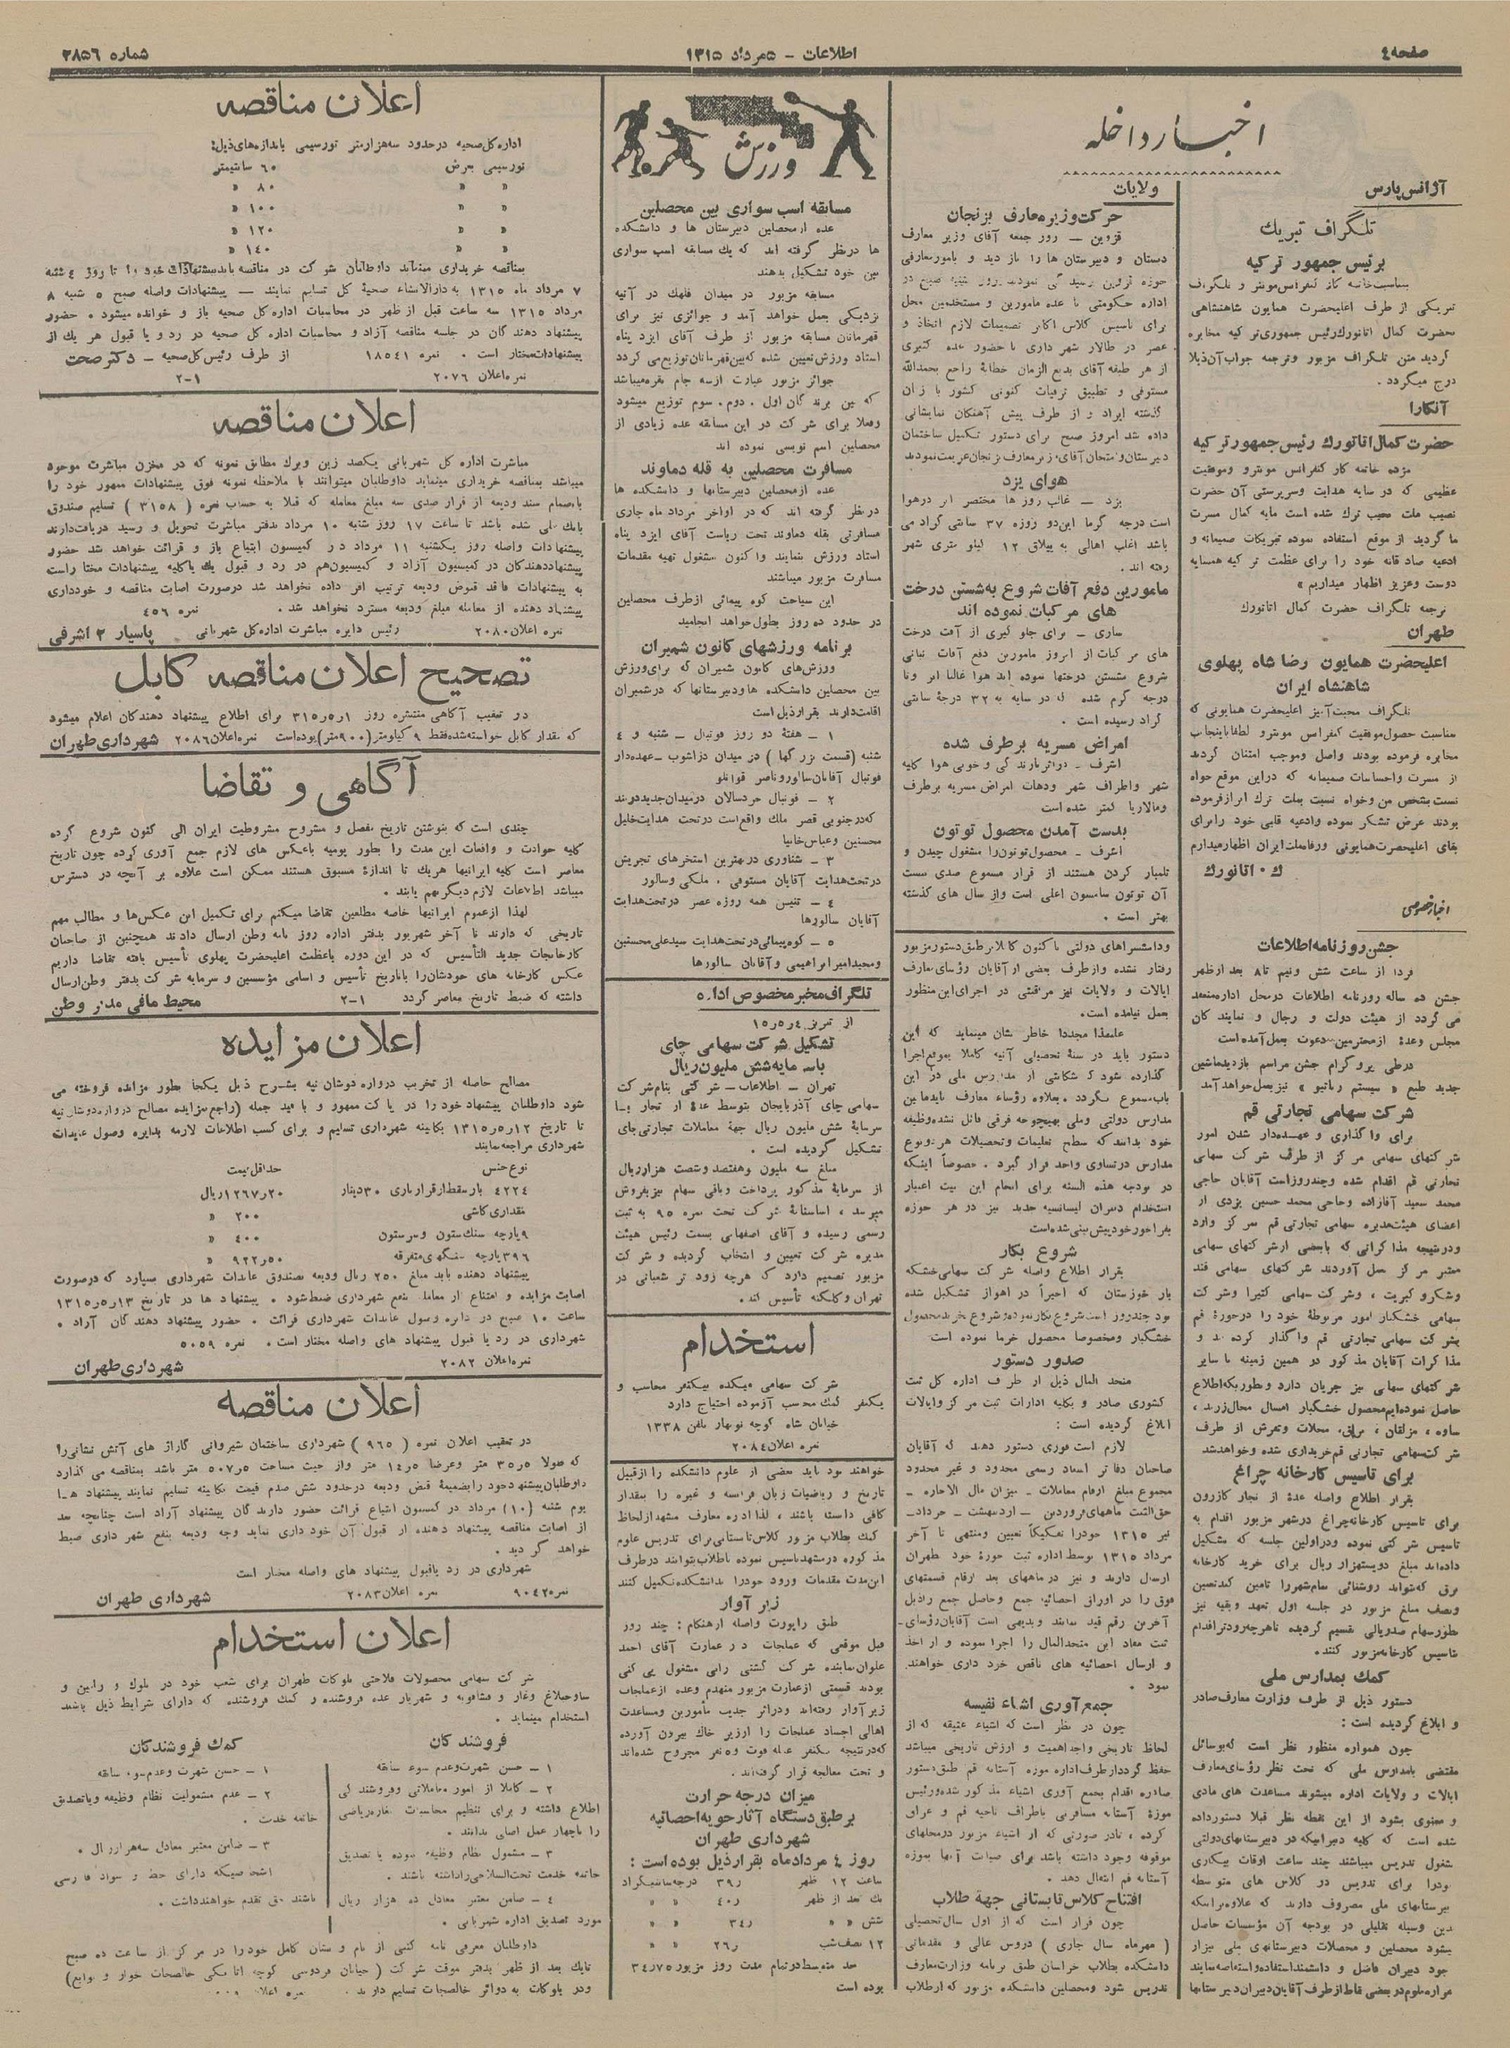 صفحه ٤
اطلاعات - ٥ مرداد ١٣١٥
شماره ٢٨٥٦
اخبار داخله
آژانس پارس
تلگراف تبریك
برئیس جمهور ترکیه
تبریکی از طرف اعلیحضرت همایون شاهنشاهی
حضرت کمال اتاتورك رئیس جمهوری تر کیه مخابره
گردید متن تلگراف مزبور وترجمه جواب آن ذیلا
درج میگردد .
آنکارا
حضرت کمال اتاتورك رئیس جمهور ترکیه
مژده خاتمه کار کنفرانس مونترو وموفقیت
عظیمی که در سایه هدایت وسرپرستی آن حضرت
نصیب ملت نجیب ترك شده است مایه کمال مسرت
ما گردید از موقع استفاده نموده تبریکات صمیمانه و
ادعیه صادقانه خود را برای عظمت تر کیه همسایه
دوست وعزیز اظهار میداریم »
ترجمه تلگراف حضرت کمال اتاتورك
طهران
اعلیحضرت همایون رضا شاه پهلوی
شاهنشاه ایران
تلگراف محبت آمیز اعلیحضرت همایونی که
مناسبت حصول موفقیت کنفرانس مونترو لطفا باینجانب
مخابره فرموده بودند واصل وموجب امتنان گردید
از مسرت واحساسات صمیمانه که دراین موقع خواه
نسبت بشخص من وخواه نسبت بملت ترك ابراز فرموده
بودند عرض تشکر نموده وادعیه قلبی خود را برای
بقای اعلیحضرت همایونی ورفاه ملت ایران اظهار میدارم
ك . اتاتورك
اخبار خصوصی
جشن روزنامه اطلاعات
فردا از ساعت شش ونیم تا ٨ بعد از ظهر
جشن ده ساله روزنامه اطلاعات در محل اداره منعقد
می گردد از هیئت دولت و رجال و نمایند کان
مجلس وعدهٔ از محترمین دعوت بعمل آمده است
درطی پروگرام جشن مراسم بازدید ماشین
جدید طبع « سیستم رتاتیو » نیز بعمل خواهد آمد
شرکت سهامی تجارتی قم
برای وا گذاری و عهده دار شدن امور
شر کتهای سهامی مر کز از طرف شر کت سهامی
تجارتی قم اقدام شده وچند روز است آقایان حاجی
محمد سعید آقازاده وحاجی محمد حسین یزدی از
اعضای هیئت مدیره سهامی تجارتی قم بمر کز وارد
ودر نتیجه مذا کراتی که با بعضی از شر کتهای سهامی
معتبر مر کز بعمل آوردند شر کتهای سهامی قند
وشکر و کبریت ، وشر کت سهامی کتیرا وشر کت
سهامی خشکبار امور مربوطهٔ خود را در حوزهٔ قم
بشر کت سهامی تجارتی قم وا گذار کرده اند و
مذا کرات آقایان مذ کور در همین زمینه با سایر
شر کتهای سهامی نیز جریان دارد وبطوریکه اطلاع
حاصل نموده ایم محصول خشکبار امسال محال زرند ،
ساوه ، مزلقان ، براق، محلات وتفرش از طرف
شر کت سهامی تجارتی قم خریداری شده وخواهد شد
برای تاسیس کارخانه چراغ
بقرار اطلاع واصله عدهٔ از تجار کازرون
برای تاسیس کارخانه چراغ درشهر مزبور اقدام به
تاسیس شر کتی نموده ودر اولین جلسه که تشکیل
داده اند مبلغ دویست هزار ریال برای خرید کارخانه
برق که بتواند روشنائی تمام شهر را تامین کند تعیین
ونصف مبلغ مزبور در جلسه اول تعهد وبقیه نیز
بطور سهام صد ریالی تقسیم گردیده تا هر چه زودتر اقدام
بتاسیس کارخانه مزبور کنند .
کمك بمدارس ملی
دستور ذیل از طرف وزارت معارف صادر
و ابلاغ گردیده است :
چون همواره منظور نظر است که بوسائل
مقتضی بامدارس ملی که تحت نظر رؤسای معارف
ایالات و ولایات اداره میشوند مساعدت های مادی
و معنوی بشود از این نقطه نظر قبلا دستور داده
شده است که کلیه دبیرانیکه در دبیرستانهای دولتی
ولایات
حرکت وزیر معارف بزنجان
قزوین — روز جمعه آقای وزیر معارف
دبستان و دبیرستان ها را باز دید و بامور معارفی
اداره حکومتی با عده مامورین و مستخدمین محل
عصر در طالار شهر داری با حضور عده کثیری
از هر طبقه آقای بدیع الزمان خطابهٔ راجع بحمدالله
مستوفی و تطبیق ترقیات کنونی کشور با زمان
گذشته ایراد و از طرف پیش آهنگان نمایشاتی
داده شد امروز صبح برای دستور تکمیل ساختمان
دبیرستان وامتحان آقای وزیر معارف بزنجان عزیمت نمودند
هوای یزد
یزد — غالب روز ها مختصر ابر درهوا
است درجه گرما این دو روزه ٣٧ سانتی گراد می
باشد اغلب اهالی به ییلاق ١٢ کیلو متری شهر
رفته اند .
مامورین دفع آفات شروع به شستن درخت
های مرکبات نموده اند
ساری — برای جلو گیری از آفت درخت
های مر کبات از امروز مامورین دفع آفات نباتی
شروع بشستن درختها نموده اند هوا غالبا ابر وتا
درجه گرم شده که در سایه به ٣٢ درجهٔ سانتی
گراد رسیده است .
امراض مسریه برطرف شده
اشرف - در اثر بارند گی و خوبی هوا کلیه
شهر واطراف شهر ودهات امراض مسریه برطرف
ومالاریا کمتر شده است
بدست آمدن محصول توتون
اشرف - محصول توتون را مشغول چیدن و
تلمبار کردن هستند از قرار مسموع صدی بیست
آن توتون سامسون اعلی است واز سال های گذشته
بهتر است .
ودانشسراهای دولتی تا کنون کاملا بر طبق دستور مزبور
رفتار نشده واز طرف بعضی از آقایان رؤسای معارف
ایالات و ولایات نیز مراقبتی در اجرای این منظور
بعمل نیامده است.
علیهذا مجددا خاطر نشان مینماید که این
دستور باید در سنهٔ تحصیلی آتیه کاملا بموقع اجرا
گذارده شود که شکایتی از مدارس ملی در این
باب مسموع نگردد . بعلاوه رؤساء معارف باید مابین
مدارس دولتی وملی بهیچوجه فرقی قائل نشده وظیفه
خود بدانند که سطح تعلیمات وتحصیلات هر دو نوع
مدارس درتساوی واحد قرار گیرد . خصوصاً اینکه
در بودجه هذه السنه برای انجام این نیت اعتبار
استخدام دبیران لیسانسیه جدید نیز در هر حوزه
بفراخور خود پیش بینی شده است
شروع بکار
بقرار اطلاع واصله شر کت سهامی خشکه
بار خوزستان که اخیراً در اهواز تشکیل شده
بود چند روز است شروع بکار نموده وشروع بخرید محصول
خشکبار ومخصوصا محصول خرما نموده است
صدور دستور
متحد المال ذیل از طرف اداره کل ثبت
کشوری صادر و بکلیه ادارات ثبت مر کز وایالات
ابلاغ گردیده است :
لازم است فوری دستور دهند که آقایان
صاحبان دفا تر اسناد رسمی محدود و غیر محدود
مجموع مبلغ ارقام معاملات - میزان مال الاجاره -
حق الثبت ماههای فروردین - اردیبهشت - خرداد-
تیر ١٣١٥ حوزهٔ خود را تفکیکاً تعیین ومنتهی تا آخر
مرداد ١٣١٥ توسط اداره ثبت حوزهٔ خود بطهران
ارسال دارند و نیز در ماههای بعد ارقام قسمتهای
فوق را در اوراق احصائیه جمع وحاصل جمع را ذیل
آخرین رقم قید نمایند وبدیهی است آقایان رؤسای
ثبت مفاد این متحد المال را اجرا نموده و از اخذ
و ارسال احصائیه های ناقص خود داری خواهند
نمود .
جمع آوری اشیاء نفیسه
چون در نظر است که اشیاء عتیقه که از
لحاظ تاریخی واجد اهمیت و ارزش تاریخی میباشد
حفظ گردد از طرف اداره موزه آستانه قم طبق دستور
صادره اقدام بجمع آوری اشیاء مذ کور شده ورئیس
موزهٔ آستانه مسافرتی باطراف ناحیه قم و عراق
کرده ، تا در صورتی که از اشیاء مزبور در محلهای
موقوفه وجود داشته باشد برای صیانت آنها بموزه
آستانه قم انتقال دهد .
افتتاح کلاس تابستانی جهة طلاب
چون قرار است که از اول سال تحصیلی
( مهرماه سال جاری ) دروس عالی و مقدماتی
دانشکده بطلاب خراسان طبق برنامه وزارت معارف
تدریس شود ومحصلین دانشکده مزبور که از طلاب
ورزش
مسابقه اسب سواری بین محصلین
عده از محصلین دبیرستان ها و دانشکده
ها درنظر گرفته اند که یك مسابقه اسب سواری
بین خود تشکیل بدهند
مسابقه مزبور در میدان فلهك در آتیه
نزدیکی بعمل خواهد آمد و جوائزی نیز برای
قهرمانان مسابقه مزبور از طرف آقای ایزد پناه
استاد ورزش تعیین شده که بین قهرمانان توزیع می گردد
جوائز مزبور عبارت از سه جام نقره میباشد
که بین برند گان اول . دوم . سوم توزیع میشود
وفعلا برای شر کت در این مسابقه عده زیادی از
محصلین اسم نویسی نموده اند
مسافرت محصلین به قله دماوند
عده از محصلین دبیرستانها و دانشکده ها
درنظر گرفته اند که در اواخر مرداد ماه جاری
مسافرتی بقله دماوند تحت ریاست آقای ایزد پناه
استاد ورزش بنمایند وا کنون مشغول تهیه مقدمات
مسافرت مزبور میباشند
این سیاحت کوه پیمائی از طرف محصلین
در حدود ده روز بطول خواهد انجامید
برنامه ورزشهای کانون شمیران
ورزش های کانون شمیران که برای ورزش
بین محصلین دانشکده ها ودبیرستانها که درشمیران
اقامت دارند بقرار ذیل است
١ - هفتهٔ دو روز فوتبال - شنبه و ٤
شنبه (قسمت بزرگها) در میدان دزاشوب - عهده دار
فوتبال آقایان سالور وناصر قوانلو
٢ - فوتبال خردسالان در میدان جدید دربند
که درجنوبی قصر ملك واقع است در تحت هدایت خلیل
محسنین وعباس خانیا
٣ - شناوری در بهترین استخرهای تجریش
در تحت هدایت آقایان مستوفی ، ملکی وسالور
٤ - تنیس همه روزه عصر در تحت هدایت
آقایان سالورها
٥ - کوه پیمائی در تحت هدایت سیدعلی محسنین
ومجید امیر ابراهیمی و آقایان سالورها
تلگراف مخبر مخصوص اداره
از تبریز ١٥ر٥ر٤
تشکیل شرکت سهامی چای
باسرمایه شش ملیون ریال
تهران - اطلاعات - شر کتی بنام شرکت
سهامی چای آذربایجان بتوسط عدهٔ از تجار با
سرمایهٔ شش ملیون ریال جههٔ معاملات تجارتی چای
تشکیل گردیده است .
مبلغ سه ملیون وهفتصد وشصت هزار ریال
از سرمایهٔ مذ کور پرداخت وباقی سهام نیز بفروش
میرسد ، اساسنامهٔ شر کت تحت نمره ٩٥ به ثبت
رسمی رسیده و آقای اصفهانی بسمت رئیس هیئت
مدیره شر کت تعیین و انتخاب گردیده و شر کت
مزبور تصمیم دارد که هرچه زود تر شعباتی در
تهران وکلکته تأسیس کند.
استخدام
شر کت سهامی میکده بیکنفر محاسب و
یکنفر کمك محاسب آزموده احتیاج دارد
خیابان شاه کوچه نوبهار تلفن ١٣٣٨
نمره اعلان ٢٠٨٤
خواهند بود باید بعضی از علوم دانشکده را از قبیل
تاریخ و ریاضیات زبان فرانسه و غیره را بمقدار
کافی دانسته باشند ، لذا اداره معارف مشهد از لحاظ
کمك بطلاب مزبور کلاس تابستانی برای تدریس علوم
مذ کوره درمشهد تاسیس نموده تا طلاب بتوانند درظرف
این مدت مقدمات ورود خود را بدانشکده تکمیل کنند
زیر آوار
طبق راپورت واصله از هنگام : چند روز
قبل موقعی که عملجات در عمارت آقای احمد
علوان نماینده شر کت کشتی رانی مشغول پی کنی
بودند قسمتی از عمارت مزبور منهدم وعده از عملجات
زیر آوار رفته اند ودر اثر جدیت مأمورین ومساعدت
اهالی اجساد عملجات را از زیر خاك بیرون آورده
که در نتیجه یکنفر عمله فوت و٥ نفر مجروح شده اند
و تحت معالجه قرار گرفته اند.
میزان درجه حرارت
برطبق دستگاه آثار جویه احصائیه
شهرداری طهران
روز ٤ مرداد ماه بقرار ذیل بوده است :
ساعت ١٢ ظهر ر٣٩ درجه سانتیگراد
یك بعد از ظهر ر٤٠ » »
شش » » ر٣٤ » »
١٢ نصف شب ر٢٦ » »
حد متوسط در تمام مدت روز مزبور ٣٤ر٧٥
بوده است
اعلان مناقصه
اداره کل صحیه درحدود سه هزار متر تور سیمی باندازه های ذیل:
تور سیمی بعرض ٦٠ سانتیمتر
» » ٨٠ »
» » ١٠٠ »
» » ١٢٠ »
» » ١٤٠ »
بمناقصه خریداری مینماید داوطلبان شر کت در مناقصه باید پیشنهادات خود را تا روز ٤ شنبه
٧ مرداد ماه ١٣١٥ به دارالانشاء صحیهٔ کل تسلیم نمایند — پیشنهادات واصله صبح ٥ شنبه ٨
مرداد ١٣١٥ سه ساعت قبل از ظهر در محاسبات اداره کل صحیه باز و خوانده میشود . حضور
پیشنهاد دهند گان در جلسه مناقصه آزاد و محاسبات اداره کل صحیه در رد و یا قبول هر یك از
پیشنهادات مختار است . نمره ١٨٥٤١ از طرف رئیس کل صحیه - دکتر صحت
نمره اعلان ٢٠٧٦ ١-٢
اعلان مناقصه
مباشرت اداره کل شهربانی یکصد زین وبرك مطابق نمونه که در مخزن مباشرت موجود
میباشد بمناقصه خریداری مینماید داوطلبان میتوانند با ملاحظه نمونه فوق پیشنهادات ممهور خود را
باضمام سند ودیعه از قرار صدی سه مبلغ معامله که قبلا به حساب نمره ( ٣١٥٨ ) تسلیم صندوق
بانك ملی شده باشد تا ساعت ١٧ روز شنبه ١٠ مرداد بدفتر مباشرت تحویل و رسید دریافت دارند
پیشنهادات واصله روز یکشنبه ١١ مرداد در کمیسیون ابتیاع باز و قرائت خواهد شد حضور
پیشنهاد دهندگان در کمیسیون آزاد و کمیسیون هم در رد و قبول یك یا کلیه پیشنهادات مختار است
به پیشنهادات فاقد قبوض ودیعه ترتیب اثر داده نخواهد شد درصورت اصابت مناقصه و خودداری
پیشنهاد دهنده از معامله مبلغ ودیعه مسترد نخواهد شد . نمره ٤٥٦
نمره اعلان ٢٠٨٠ رئیس دایره مباشرت اداره کل شهربانی پاسیار ٢ اشرفی
تصحیح اعلان مناقصه کابل
در تعقیب آگاهی منتشره روز ١ر٥ر٣١٥ برای اطلاع پیشنهاد دهندگان اعلام میشود
که مقدار کابل خواسته شده فقط ٩ کیلومتر (٩٠٠٠متر) بوده است نمره اعلان ٢٠٨٦ شهرداری طهران
آگاهی و تقاضا
چندی است که بنوشتن تاریخ مفصل و مشروح مشروطیت ایران الی کنون شروع کرده
کلیه حوادث و واقعات این مدت را بطور یومیه باعکس های لازم جمع آوری کرده چون تاریخ
معاصر است کلیه ایرانیها هریك تا اندازهٔ مسبوق هستند ممکن است علاوه بر آنچه در دسترس
میباشد اطلاعات لازم دیگر بهم یابند .
لهذا از عموم ایرانیها خاصه مطلعین تقاضا میکنم برای تکمیل این عکس ها و مطالب مهم
تاریخی که دارند تا آخر شهریور بدفتر اداره روز نامه وطن ارسال دارند همچنین از صاحبان
کارخانجات جدید التأسیس که در این دوره باعظمت اعلیحضرت پهلوی تأسیس یافته تقاضا داریم
عکس کارخانه های خودشان را باتاریخ تأسیس و اسامی مؤسسین و سرمایه شر کت بدفتر وطن ارسال
داشته که ضبط تاریخ معاصر گردد ١-٢ محیط مافی مدیر وطن
اعلان مزایده
مصالح حاصله از تخریب دروازه دوشان تپه بشرح ذیل یکجا بطور مزایده فروخته می
شود داوطلبان پیشنهاد خود را در پا کت ممهور و با قید جمله (راجع بمزایده مصالح دروازه دوشان تپه
تا تاریخ ١٢ر٥ر١٣١٥ بکابینه شهرداری تسلیم و برای کسب اطلاعات لازمه بدایره وصول عایدات
شهرداری مراجعه نمایند
نوع جنس حداقل قیمت
٤٢٢٤ بار سقط از قرار باری ٣٠ دینار ٢٠ر١٢٦٧ ریال
مقداری کاشی ٢٠٠ »
٩ پارچه سنك ستون وسر ستون ٤٠٠ »
٣٩٦ پارچه سنگهای متفرقه ٥٠ر٩٢٢ »
پیشنهاد دهنده باید مبلغ ٢٥٠ ریال ودیعه بصندوق عایدات شهرداری بسپارد که درصورت
اصابت مزایده و امتناع از معامله بنفع شهرداری ضبط شود . پیشنهاد ها در تاریخ ١٣ر٥ر١٣١٥
ساعت ١٠ صبح در دایره وصول عایدات شهرداری قرائت . حضور پیشنهاد دهند گان آزاد .
شهرداری در رد یا قبول پیشنهاد های واصله مختار است . نمره ٥٠٥٩
نمره اعلان ٢٠٨٢ شهرداری طهران
اعلان مناقصه
در تعقیب اعلان نمره ( ٩٦٥ ) شهرداری ساختمان شیروانی گاراژ های آتش نشانی را
که طولا ٣٥ر٥ متر وعرضا ١٤ر٥ متر واز حیث مساحت ٥٠٧ر٥ متر باشد بمناقصه می گذارد
داوطلبان پیشنهاد خود را بضمیمهٔ قبض ودیعه درحدود شش صدم قیمت بکابینه تسلیم نمایند پیشنهاد ها
یوم شنبه (١٠) مرداد در کمیسیون ابتیاع قرائت حضور دارند گان پیشنهاد آزاد است چنانچه بعد
از اصابت مناقصه پیشنهاد دهنده از قبول آن خود داری نماید وجه ودیعه بنفع شهر داری ضبط
خواهد گر دید .
شهرداری در رد یا قبول پیشنهاد های واصله مختار است
نمره ٩٠٤٢ نمره اعلان ٢٠٨٣ شهرداری طهران
اعلان استخدام
شر کت سهامی محصولات فلاحتی بلوکات طهران برای شعب خود در بلوك و رامین و
ساوجبلاغ وغار و فشافویه و شهریار عده فروشنده و کمك فروشنده که دارای شرایط ذیل باشند
استخدام مینماید .
فروشند کان
١ - حسن شهرت وعدم سوء سابقه
٢ - کاملا از امور معاملاتی وفروشند گی
اطلاع داشته و برای تنظیم محاسبات مغازه ریاضی
را با چهار عمل اصلی بدانند .
٣ - مشمول نظام وظیفه نبوده یا تصدیق
خاتمه خدمت تحت السلاحی را داشته باشند .
٤ - ضامن معتبر معادل ده هزار ریال
مورد تصدیق اداره شهربانی .
کمك فروشندگان
١ - حسن شهرت وعدم سوء سابقه
٢ - عدم مشمولیت نظام وظیفه ویا تصدیق
خاتمه خدمت .
٣ - ضامن معتبر معادل سه هزار ریال .
اشخاصیکه دارای خط و سواد فارسی
باشند حق تقدم خواهند داشت .
داوطلبان معرفی نامه کتبی از نام و نشان کامل خود را در مر کز از ساعت ده صبح
تا یك بعد از ظهر بدفتر موقت شر کت ( خیابان فردوسی کوچه اتابکی خالصجات خوار و توابع)
ودر بلوکات به دوائر خالصجات تسلیم دارند .